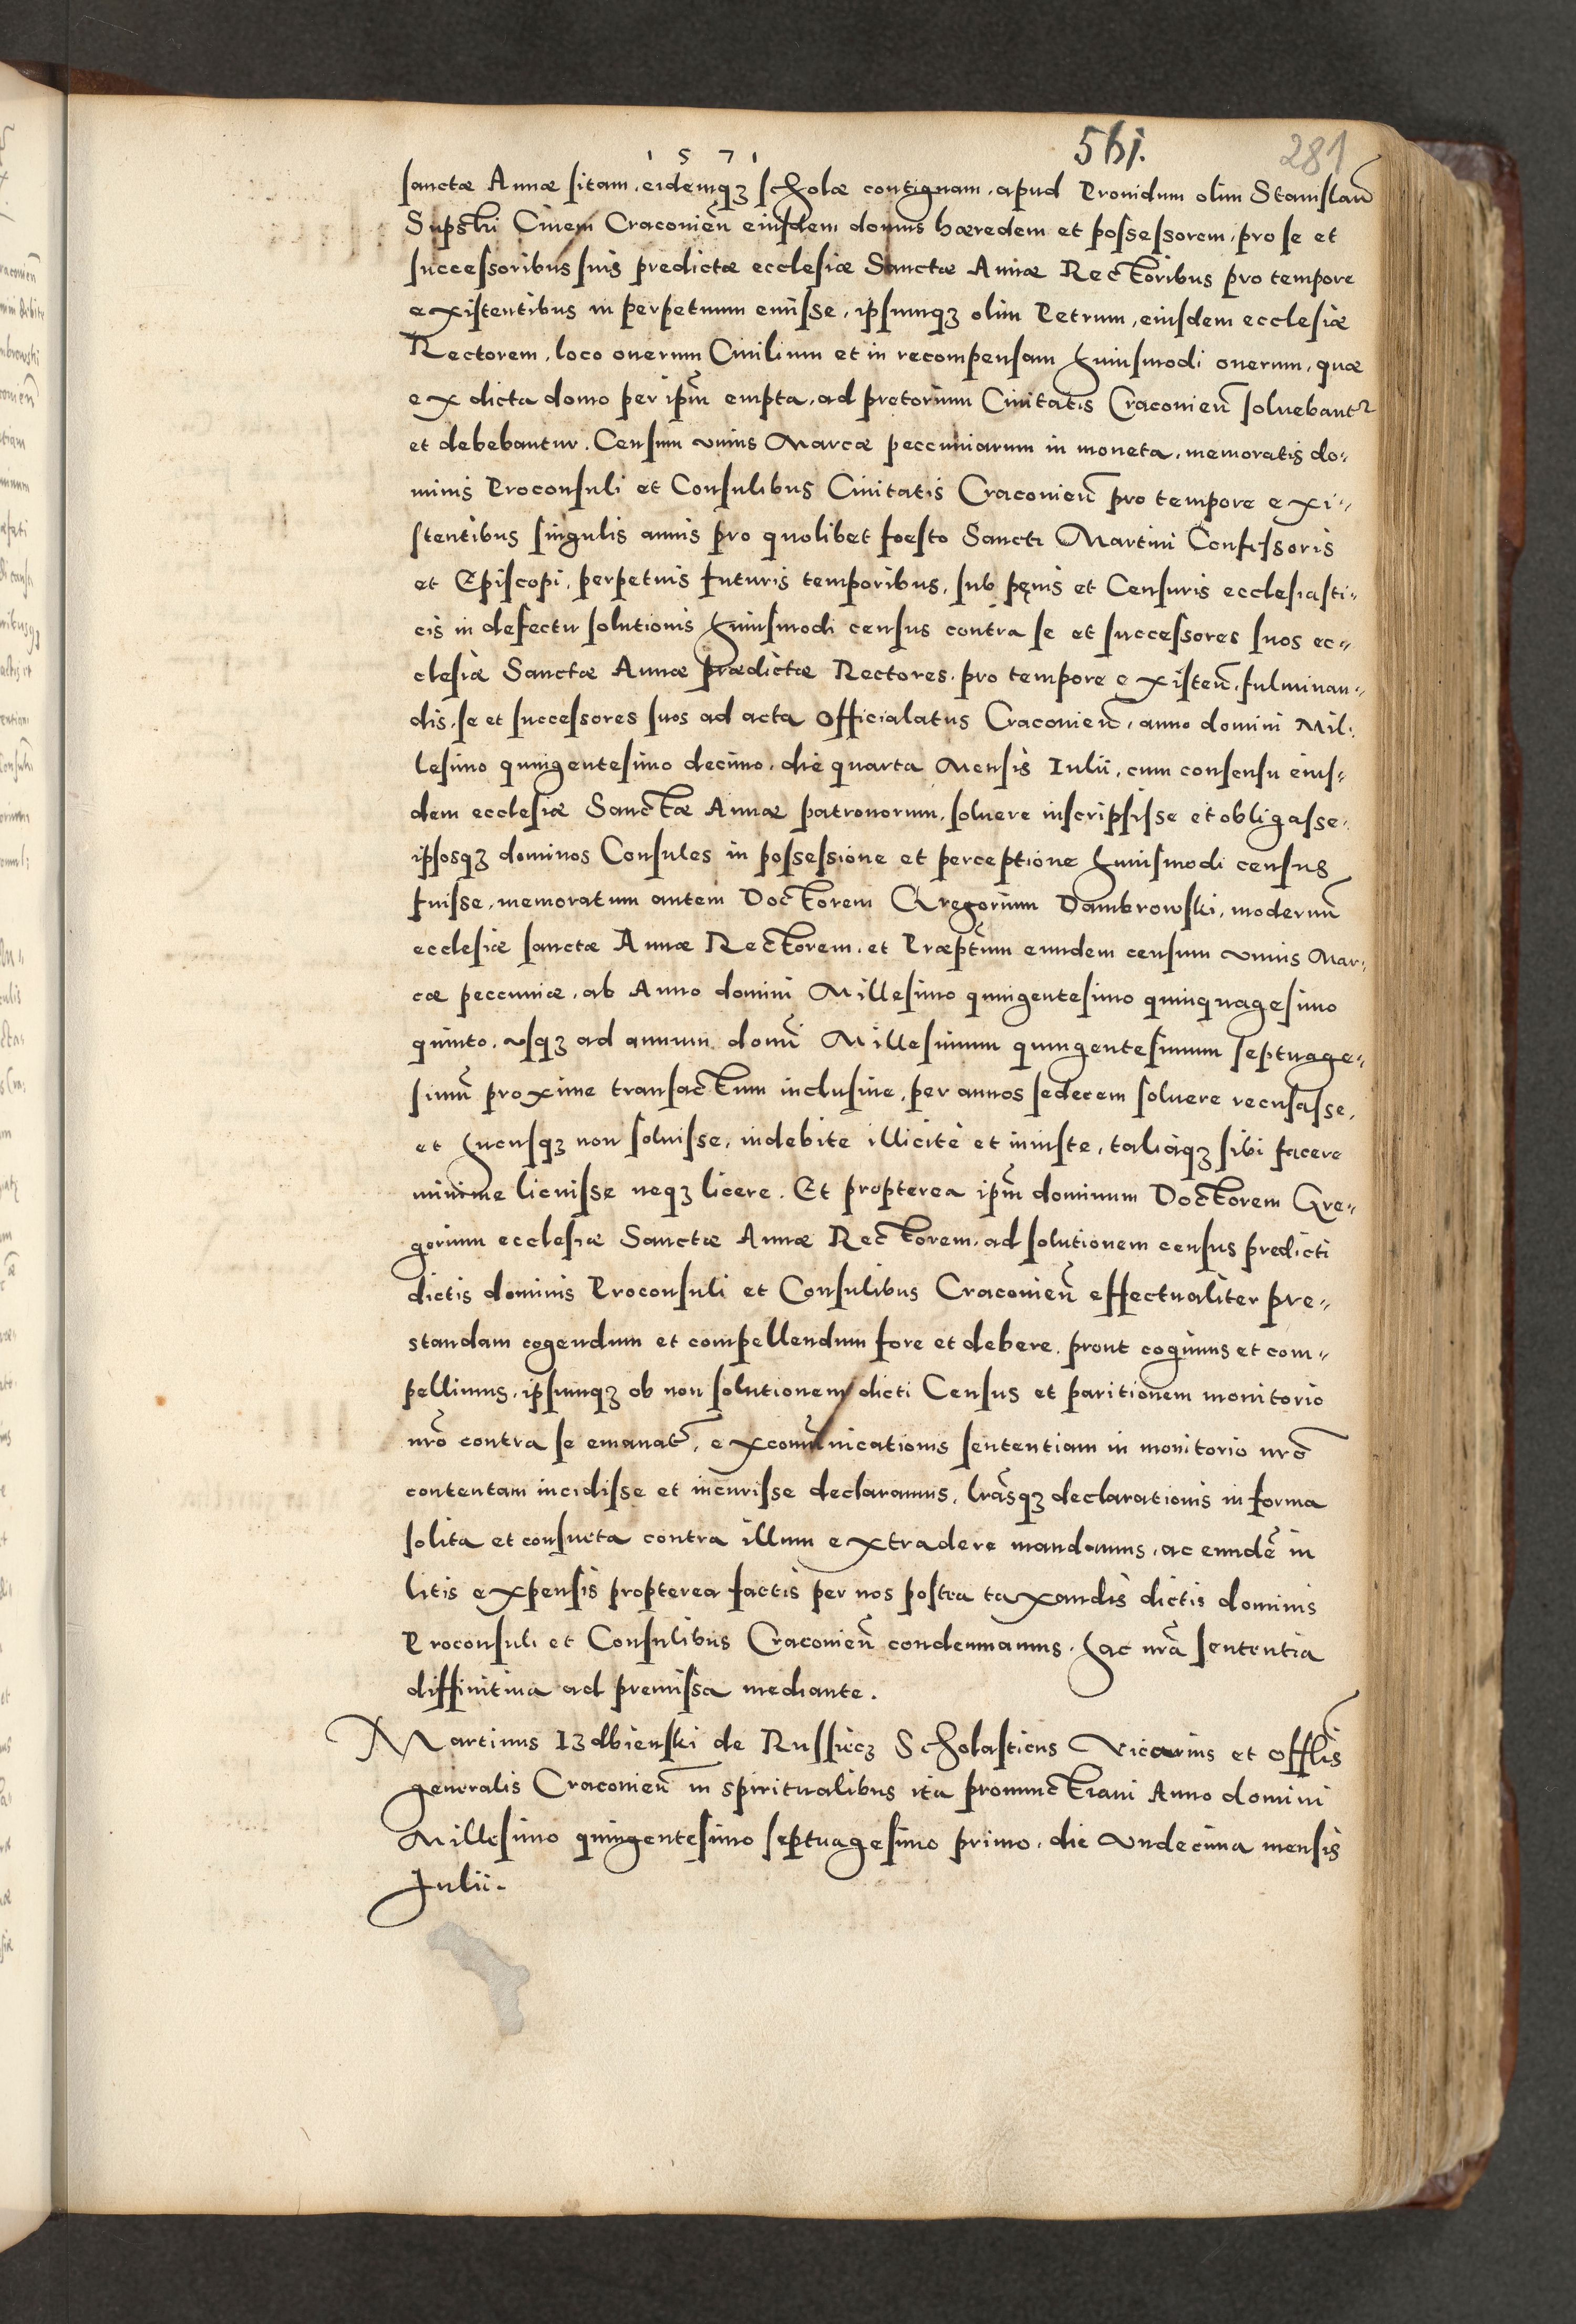 1571
561.
281
sanctæ Annæ sitam, eidemqȝ scholæ contiguam, apud Prouidum olim Stanislaũ
Supski Ciuem Craconieñ eiusdem domus hæredem et possessorem, pro se et
successoribus suis predictæ ecclesiæ Sanctæ Annæ Rectoribus pro tempore
existentibus in perpetuum emisse, ipsumqȝ olim Petrum, eiusdem ecclesiæ
Rectorem, loco onerum Ciuilium et in recompensam huiusmodi onerum, quæ
ex dicta domo per ip̃m empta, ad pretorium Ciuitatis Cracouieñ soluebant᷑
et debebantur. Censum vnius Marcæ peccuniarum in moneta, memoratis do-
minis Proconsuli et Consulibus Ciuitatis Cracouieñ pro tempore exi-
stentibus singulis annis pro quolibet foesto Sancti Martini Confessoris
et Episcopi, perpetuis futuris temporibus, sub pęnis et Censuris ecclesiasti-
cis in defectu solutionis huiusmodi census contra se et successores suos ec-
clesiæ Sanctæ Annæ prædictæ Rectores, pro tempore existeñ, fulminan-
dis, se et successores suos ad acta Officialatus Cracouieñ, anno domini Mil-
lesimo quingentesimo decimo, die quarta Mensis Iulii, cum consensu eius-
dem ecclesiæ Sanctæ Annæ patronorum, soluere inscripsisse et obligasse,
ipsosqȝ dominos Consules in possessione et perceptione huiusmodi census
fuisse, memoratum autem Doctorem Gregorium Dambrowski, modernũ
ecclesiæ sanctæ Annæ Rectorem, et Præpt̃um eundem censum vnius Mar-
cæ peccuniæ, ab Anno domini Millesimo quingentesimo quinquagesimo
quinto, vsqȝ ad annum domñ Millesimum quingentesimum septuage-
simũ proxime transactum inclusiue, per annos sedecem soluere recusasse,
et hucusqȝ non soluisse, indebite illicitè et iniuste, taliaqȝ sibi facere
minime licuisse neqȝ licere. Et propterea ip̃m dominum Doctorem Gre-
gorium ecclesiæ Sanctæ Annæ Rectorem, ad solutionem census predicti
dictis dominis Proconsuli et Consulibus Cracouieñ effectualiter pre-
standam cogendum et compellendum fore et debere, prout cogimus et com-
pellimus, ipsumqȝ ob non solutionem dicti Census et paritionem monitorio
nr̃o contra se emanat᷑, excom̃unicationis sententiam in monitorio nr̃o
contentam incidisse et incurisse declaramus, lr̃asqȝ declarationis in forma
solita et consueta contra illum extradere mandamus, ac eundẽ in
litis expensis propterea factis per nos postea taxandis dictis dominis
Proconsuli et Consulibus Cracouieñ condemnamus, hac nr̃a sententia
diffinitiua ad premissa mediante.
Martinus Izdbienski de Russiecz Scholasticus Vicarius et Offl̃is
generalis Cracouieñ in spiritualibus ita pronunctiaui Anno domini
Millesimo quingentesimo septuagesimo primo, die vndecima mensis
Julii.